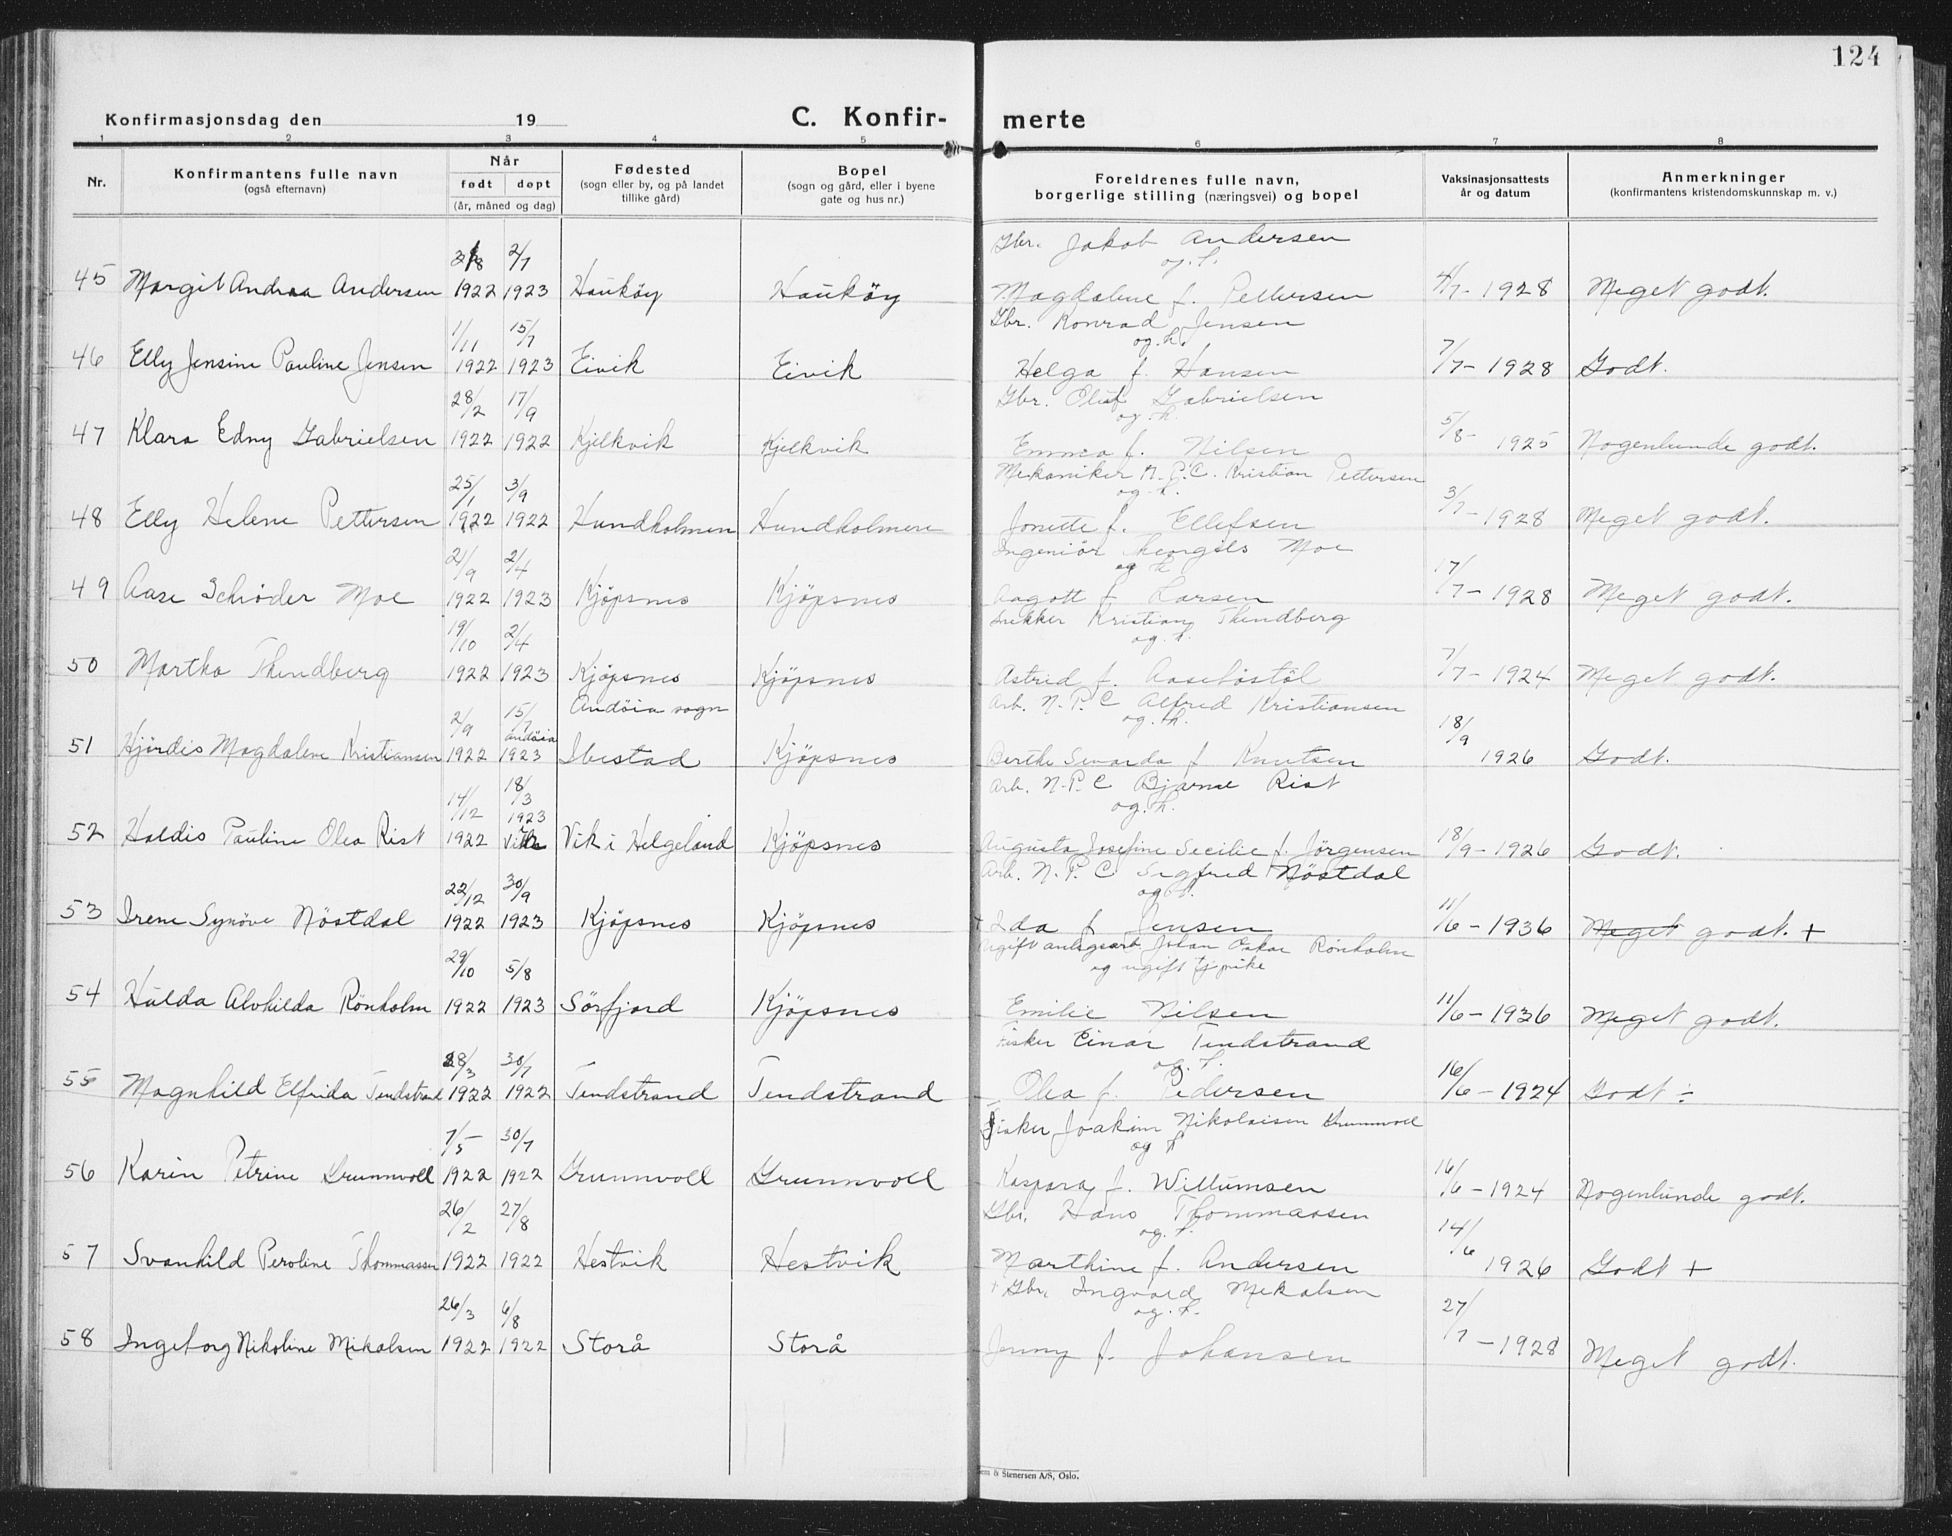 124
Konfirmasjonsdag den 19 C. Konfir- merte
1 2 3 4 5 6 7 8
Nr. Konfirmantens fulle navn (også efternavn) Når født døpt (år, måned og dag) Fødested (sogn eller by, og på landet tillike gård) Bopel (sogn og gård, eller i byene gate og hus nr.) Foreldrenes fulle navn, borgerlige stilling (næringsvei) og bopel Vaksinasjonsattests år og datum Anmerkninger (konfirmantens kristendomskunnskap m. v.)
2/7 Gbr. Jakob Andersen
og h.
45 Margit Andrea Andersen 1922 1923 Hauköy Hauköy Magdalene f. Pettersen 4/7- 1928 Meget godt.
1/11 15/7 Gbr. Konrad Jensen
og h.
46 Elly Jensine Pauline Jensen 1922 1923 Eivik Eivik Helga f. Hansen 7/7- 1928 Godt.
28/2 17/9 Gbr. Oluf Gabrielsen
og h.
47 Klara Edny Gabrielsen 1922 1922 Kjelkvik Kjelkvik Emma f. Nilsen 5/8- 1925 Nogenlunde godt.
25/1 3/9 Mekaniker N.P.C. Kristian Pettersen
og h.
48 Elly Helene Pettersen 1922 1922 Hundholmen Hundholmen Jonette f. Ellefsen 3/7- 1928 Meget godt.
21/9 2/4 Ingeniör Moe
og h.
49 Aase Schrøder Moe 1922 1923 Kjöpsnes Kjöpsnes Aagott f. Larsen 17/7- 1928 Meget godt.
19/10 2/4 Snekker Kristian Thendberg
og h.
50 Martha Thendberg 1922 1923 Kjöpsnes Kjöpsnes Astrid f. 7/7- 1924 Meget godt.
2/9 15/7 Andöia Andöia sogn Arb. N.P.C Alfred Kristiansen
og h.
51 Hjördis Magdalene Kristiansen 1922 1923 Ibestad Kjöpsnes Berthe f. Knutsen 18/9 1926 Godt.
14/12 18/3 1923 Arb. N.P.C Bjarne Rist
og h.
52 Haldis Pauline Olea Rist 1922 Vik Vik i Helgeland Kjöpsnes Augusta Josefine Secilie f. Jörgensen 18/9- 1926 Godt.
22/12 30/9 Arb. N.P.C Sigfred Nöstdal
og h.
53 Irene Synöve Nöstdal 1922 1923 Kjöpsnes Kjöpsnes + Ida f. Jensen 11/6- 1936 Meget godt. +
29/10 5/8 Ugift anlegsarb Johan Oskar Rönholm
og ugift tj.pike
54 Hulda Alvhilda Rönholm 1922 1923 Sörfjord Kjöpsnes Emilie Nilsen 11/6- 1936 Meget godt.
28/3 30/7 Fisker Einar Tendstrand
og h.
55 Magnhild Elfrida Tendstrand 1922 1922 Tendstrand Tendstrand Olea f. Pedersen 16/6- 1924 Godt ÷
7/5 30/7 Fisker Joakim Nikolaisen Grunnvoll
og h
56 Karin Petrine Grunnvoll 1922 1922 Grunnvoll Grunnvoll Kaspara f. Willumsen 16/6- 1924 Nogenlunde godt.
26/2 27/8 Gbr. Hans Thommassen
og h.
57 Svanhild Peroline Thommassen 1922 1922 Hestvik Hestvik Marthine f. Andersen 14/6 1926 Godt +
26/3 6/8 + Gbr. Ingvald Mikalsen
og h.
58 Ingeborg Nikoline Mikalsen 1922 1922 Storå Storå Jenny f. Johansen 27/7- 1928 Meget godt.
& Stenersen A/S, Oslo.